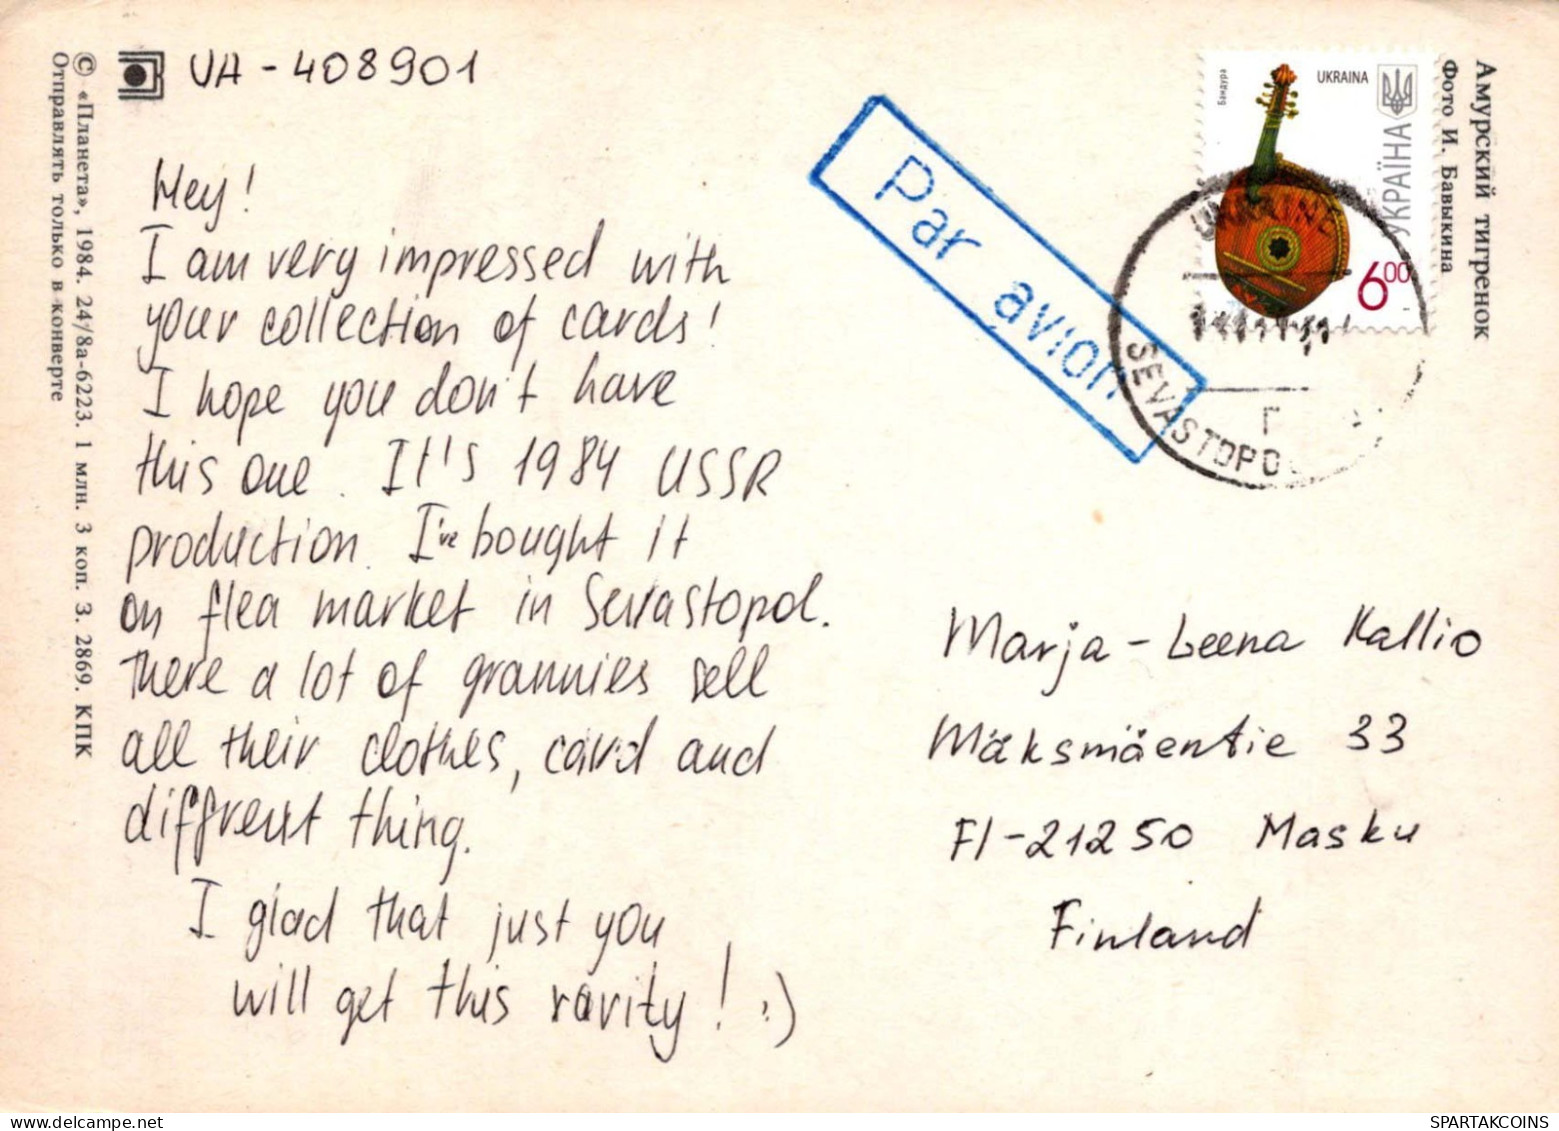 UA-408901
Hey!
I am very impressed with
your collection of cards!
I hope you don't have
this one. It's 1984 USSR
production. I've bought it
on flea market in Sevastopol.
There a lot of grannies sell
all their clothes, card and
different thing.
I glad that just you
will get this rarity! :)
© «Планета», 1984. 24/8а-6223. 1 млн. 3 коп. З. 2869. КПК
Отправлять только в конверте
Par avion
Бандура
UKRAINA
УКРАЇНА
6.00
UKRAINE
SEVASTOPOL
Г
Амурский тигренок
Фото И. Бавыкина
Marja-Leena Kallio
Mäksmäentie 33
FI-21250 Masku
Finland
SPARTAKCOINS